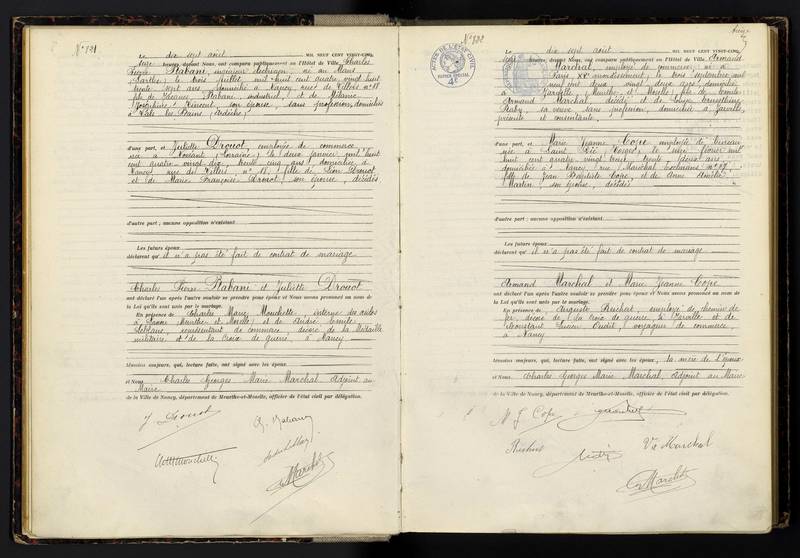 N° 831
Le dix sept août MIL NEUF CENT VINGT-CINQ,
seize heures, devant Nous, ont comparu publiquement en l'Hôtel de Ville, Charles
Pierre Rabani, ingénieur, né au Mans
Sarthe, le trois juillet mil huit cent quatre vingt huit
trente sept ans, domicilié à Nancy, rue de Villers n° 18,
fils de Rabani, industriel, et de Mélanie
Joséphine Vincent, son épouse, sans profession, domiciliés
d'une part, et Juliette Drouot, employée de commerce
née à (Lorraine), le deux janvier mil huit
cent quatre vingt dix, trente cinq ans, domiciliée à
Nancy, rue de Villers, n° 18, fille de Léon Drouot
et de Marie Françoise Drouot, son épouse, décédés
d'autre part ; aucune opposition n'existant
Les futurs époux
déclarent qu'il n'a pas été fait de contrat de mariage
Charles Pierre Rabani et Juliette Drouot
ont déclaré l'un après l'autre vouloir se prendre pour époux et Nous avons prononcé au nom de
la Loi qu'ils sont unis par le mariage.
En présence de Charles Marie Mouchette, interne des asiles
à Meurthe et Moselle, et de André
Leblanc, représentant de commerce, décoré de la Médaille
militaire et de la Croix de guerre, à Nancy
témoins majeurs, qui, lecture faite, ont signé avec les époux
et Nous Charles Georges Marie Marchal, Adjoint au
Maire
de la Ville de Nancy, département de Meurthe-et-Moselle, officier de l'état civil par délégation.
J Drouot
Ch. Rabani
Marchal
N° 832
Le dix sept août MIL NEUF CENT VINGT-CINQ,
seize heures, devant Nous, ont comparu publiquement en l'Hôtel de Ville, Armand
Marchal, employé de commerce, né à
Paris XXe arrondissement, le trois septembre mil
neuf cent deux, vingt deux ans, domicilié
à Jarville, Meurthe et Moselle, fils de
Armand Marchal, décédé, et de Louise
sa veuve, sans profession, domiciliée à Jarville,
présente et consentante,
d'une part, et Marie Jeanne Cope, employée de bureau
née à Saint Dié (Vosges), le février mil
huit cent quatre vingt treize, trente deux ans,
domiciliée à Nancy, rue Maréchal Exelmans n° 17,
fille de Jean Baptiste Cope, et de Anne Amélie
Martin, son épouse, décédés
d'autre part ; aucune opposition n'existant
Les futurs époux
déclarent qu'il n'a pas été fait de contrat de mariage
Armand Marchal et Marie Jeanne Cope
ont déclaré l'un après l'autre vouloir se prendre pour époux et Nous avons prononcé au nom de
la Loi qu'ils sont unis par le mariage.
En présence de Auguste Ruchet, employé de chemin de
fer, décoré de la croix de guerre, à Jarville et de
Constant Lucien Oudit, voyageur de commerce,
à Nancy
témoins majeurs, qui, lecture faite, ont signé avec les époux, la mère de l'époux
et Nous Charles Georges Marie Marchal, Adjoint au Maire
de la Ville de Nancy, département de Meurthe-et-Moselle, officier de l'état civil par délégation.
M J Cope
Vve Marchal
Marchal